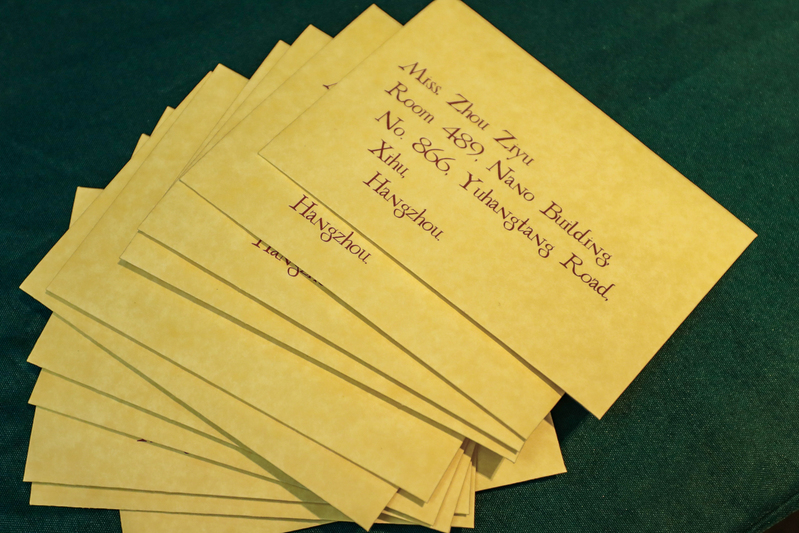 Miss. Zhou Ziyu
Room 489, Nano Building,
No. 866, Yuhangtang Road,
Xihu,
Hangzhou.
Hangzhou.